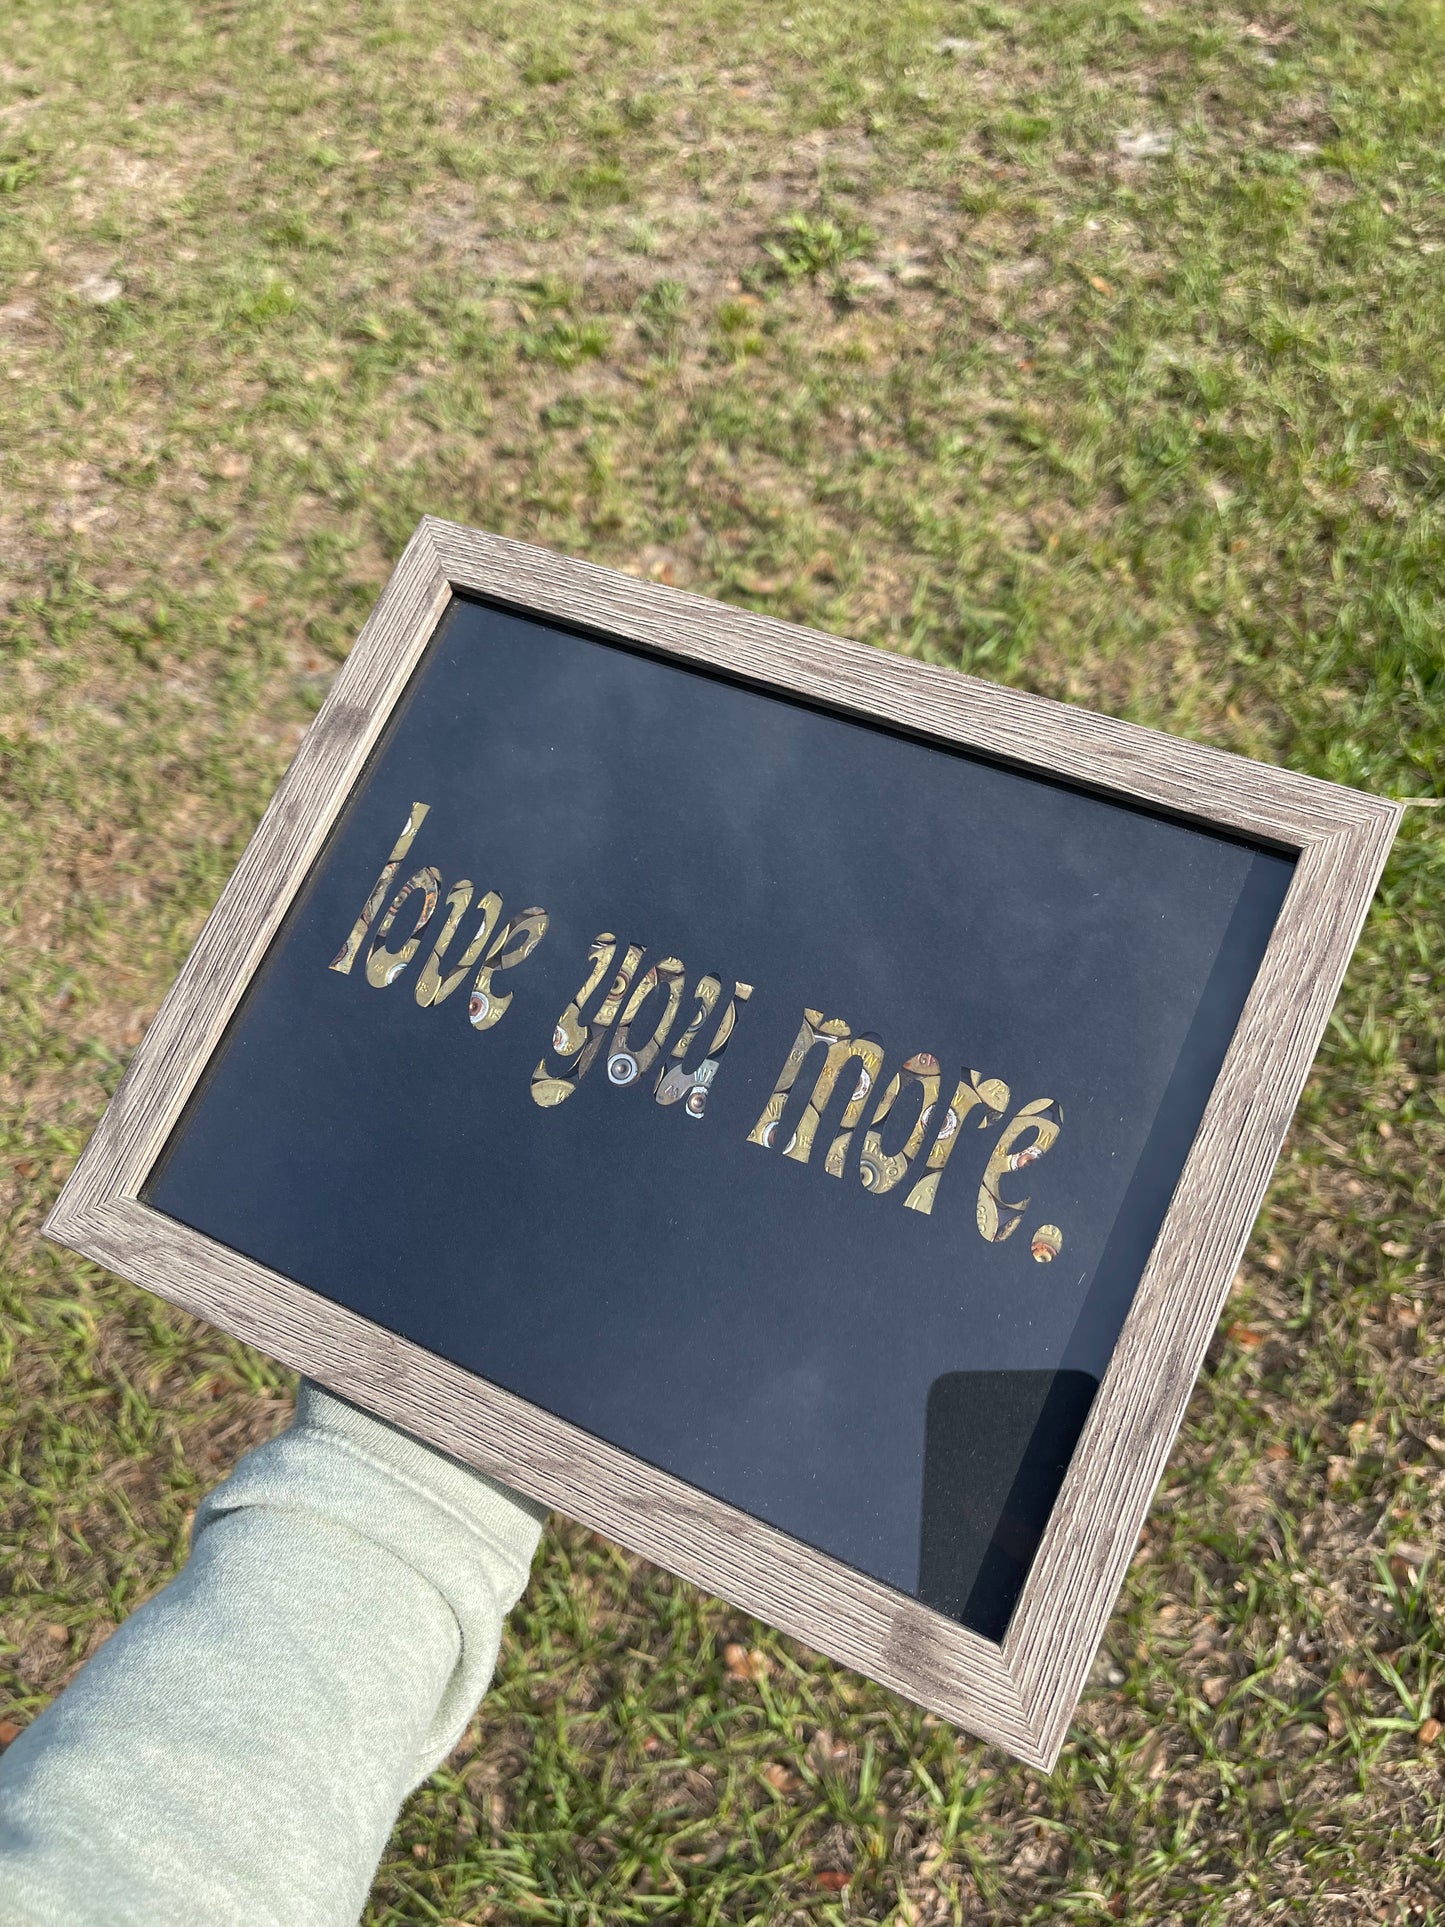 love you more.